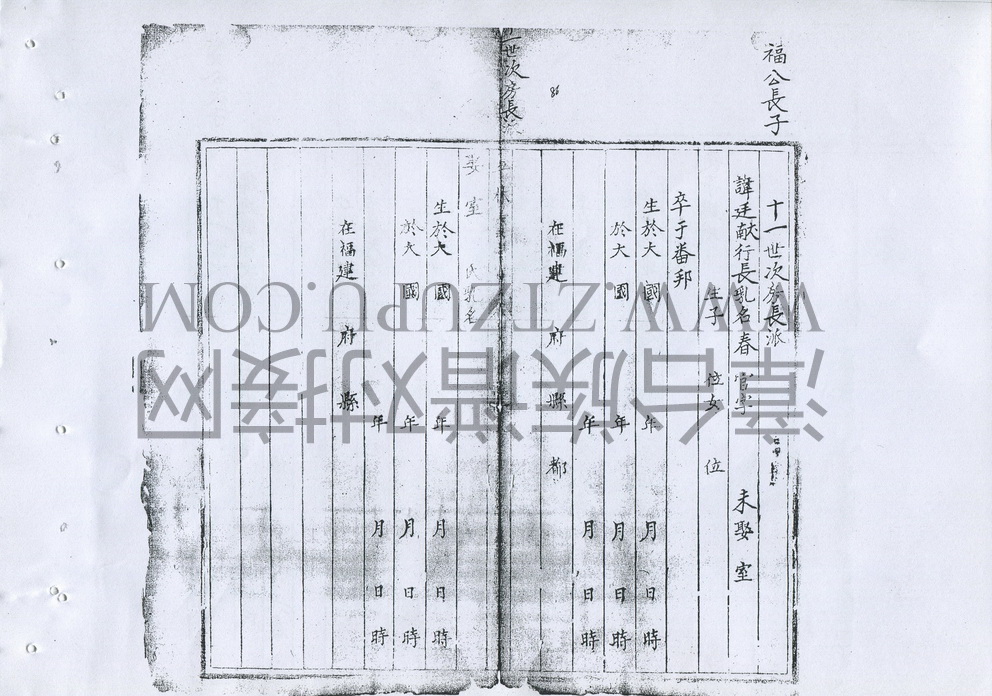 福公長子
十一世次房長派
諱廷献行長乳名春 官字 未娶室
生子 位女 位
卒于番邦
生於大 國 年 月 日 時
於大 國 年 月 日 時
年 月 日 時
在福建 府 縣 都
86
世次房長派
娶室 氏乳名
生於大 國 年 月 日 時
於大 國 年 月 日 時
年 月 日 時
在福建 府 縣
WWW.ZTZUPU.COM
漳台族谱对接网